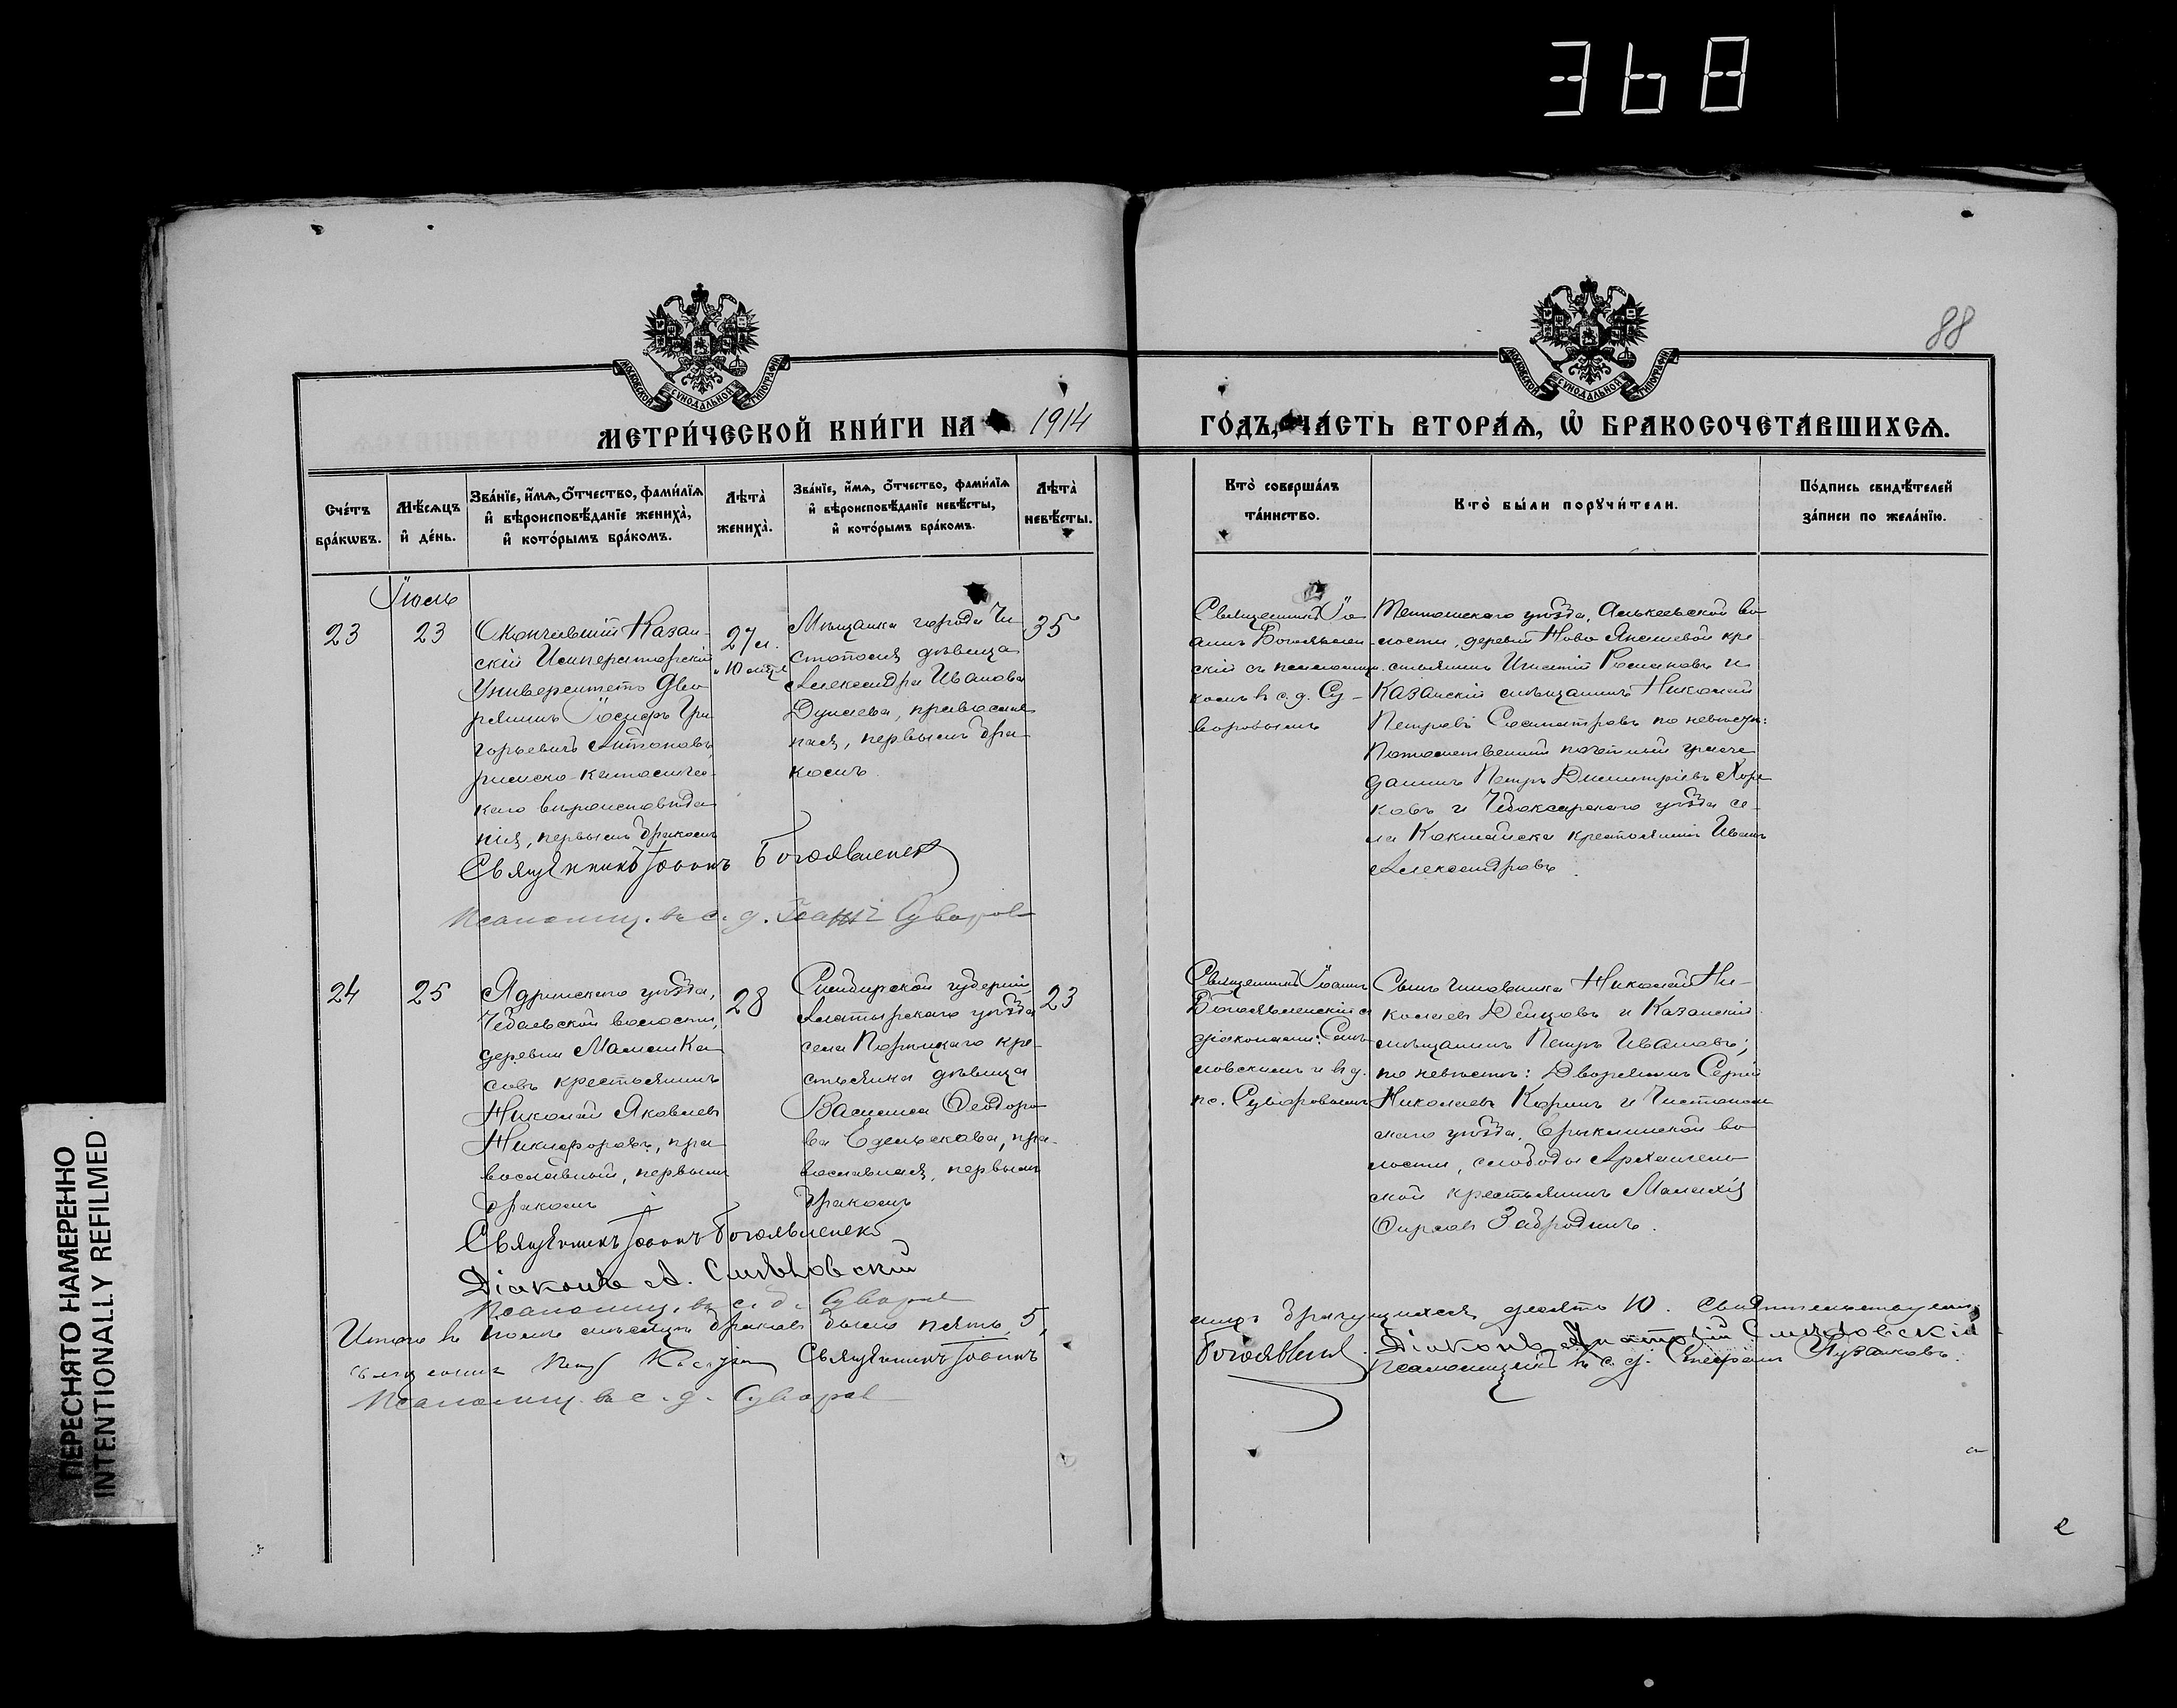 368
88
МОСКОВСКОЙ СѴНОДАЛЬНОЙ ТИПОГРАФІИ
МОСКОВСКОЙ СѴНОДАЛЬНОЙ ТИПОГРАФІИ
МЕТРИ́ЧЕСКОЙ КНИ́ГИ НА 1914
ГО́ДЪ, ЧА́СТЬ ВТОРА́Ѧ, Ѽ БРАКОСОЧЕТА́ВШИХСѦ.
Сче́тъ
бра́кѡвъ.
Мѣ́сѧцъ
и҆ де́нь.
Зва́нїе, и҆́мѧ, ѻ҆́тчество, фами́лїѧ
и҆ вѣроисповѣ́данїе жениха̀,
и҆ кото́рымъ бра́комъ.
Лѣта̀
жениха̀.
Зва́нїе, и҆́мѧ, ѻ҆́тчество, фами́лїѧ
и҆ вѣроисповѣ́данїе невѣ́сты,
и҆ кото́рымъ бра́комъ.
Лѣта̀
невѣ́сты.
Кто̀ соверша́лъ
та́инство.
Кто̀ бы́ли порꙋчи́тели.
По́дпись свидѣ́телей
за́писи по жела́нїю.
Іюль
23
23
Окончившій Казан-
скій Императорскій
Университетъ дво-
рянинъ Іосифъ Гри-
горьевичъ Антоновъ,
римско-католичес-
каго вѣроисповѣда-
нія, первымъ бракомъ
27 л.
и 10 мѣсяц.
Мѣщанка города Чи-
стополя дѣвица
Александра Иванова
Дунаева, православ-
ная, первымъ бра-
комъ.
35
Священникъ Іо-
аннъ Богоявлен-
скій съ псаломщи-
комъ в с. д. Су-
воровымъ
уѣзда, во-
лости, деревни Ново кре-
стьянинъ Игнатій Романовъ и
Казанскій мѣщанинъ Николай
Петровъ по невѣстѣ:
Потомственный почетный граж-
данинъ Петръ Димитріевъ
и Чебоксарскаго уѣзда се-
ла Кокшайска крестьянинъ Иванъ
Александровъ.
Священникъ Іоаннъ Богоявленск
Псаломщ. в с. д. Іоаннъ Суворов
24
25
Ядринскаго уѣзда,
Чебаевской волости,
деревни
крестьянинъ
Николай Яковлевъ
Никифоровъ, пра-
вославный, первымъ
бракомъ
28
Симбирской губерніи
Алатырскаго уѣзда
села кре-
стьянка дѣвица
Василиса Ѳеодоро-
ва пра-
вославная, первымъ
бракомъ
23
Священникъ Іоаннъ
Богоявленскій с
діаконами: Смѣ-
ловскимъ и в д.
пс. Суворовымъ
Сынъ чиновника Николай Ни-
колаевъ и Казанскій
мѣщанинъ Петръ Ивановъ;
по невѣстѣ: Дворянинъ Сергій
Николаевъ и Чистополь-
скаго уѣзда, Ерыклинской во-
лости, слободы Архангель-
ской крестьянинъ Малахія
Фирсовъ Забродинъ.
Священникъ Іоаннъ Богоявленск
Діаконъ А. Смѣловскій
Псаломщ. в с. д. Суворов
Итого въ Іюлѣ мѣсяцѣ браковъ было пять, 5,
лицъ брачущихся десять 10. Свидѣтельствуемъ
Священникъ Іоаннъ
Богоявленск. Діаконъ Анатолій Смѣловскій
Псаломщ. в с. д. Суворов
Псаломщикъ в с. д. Стефанъ
ПЕРЕСНЯТО НАМЕРЕННО
INTENTIONALLY REFILMED